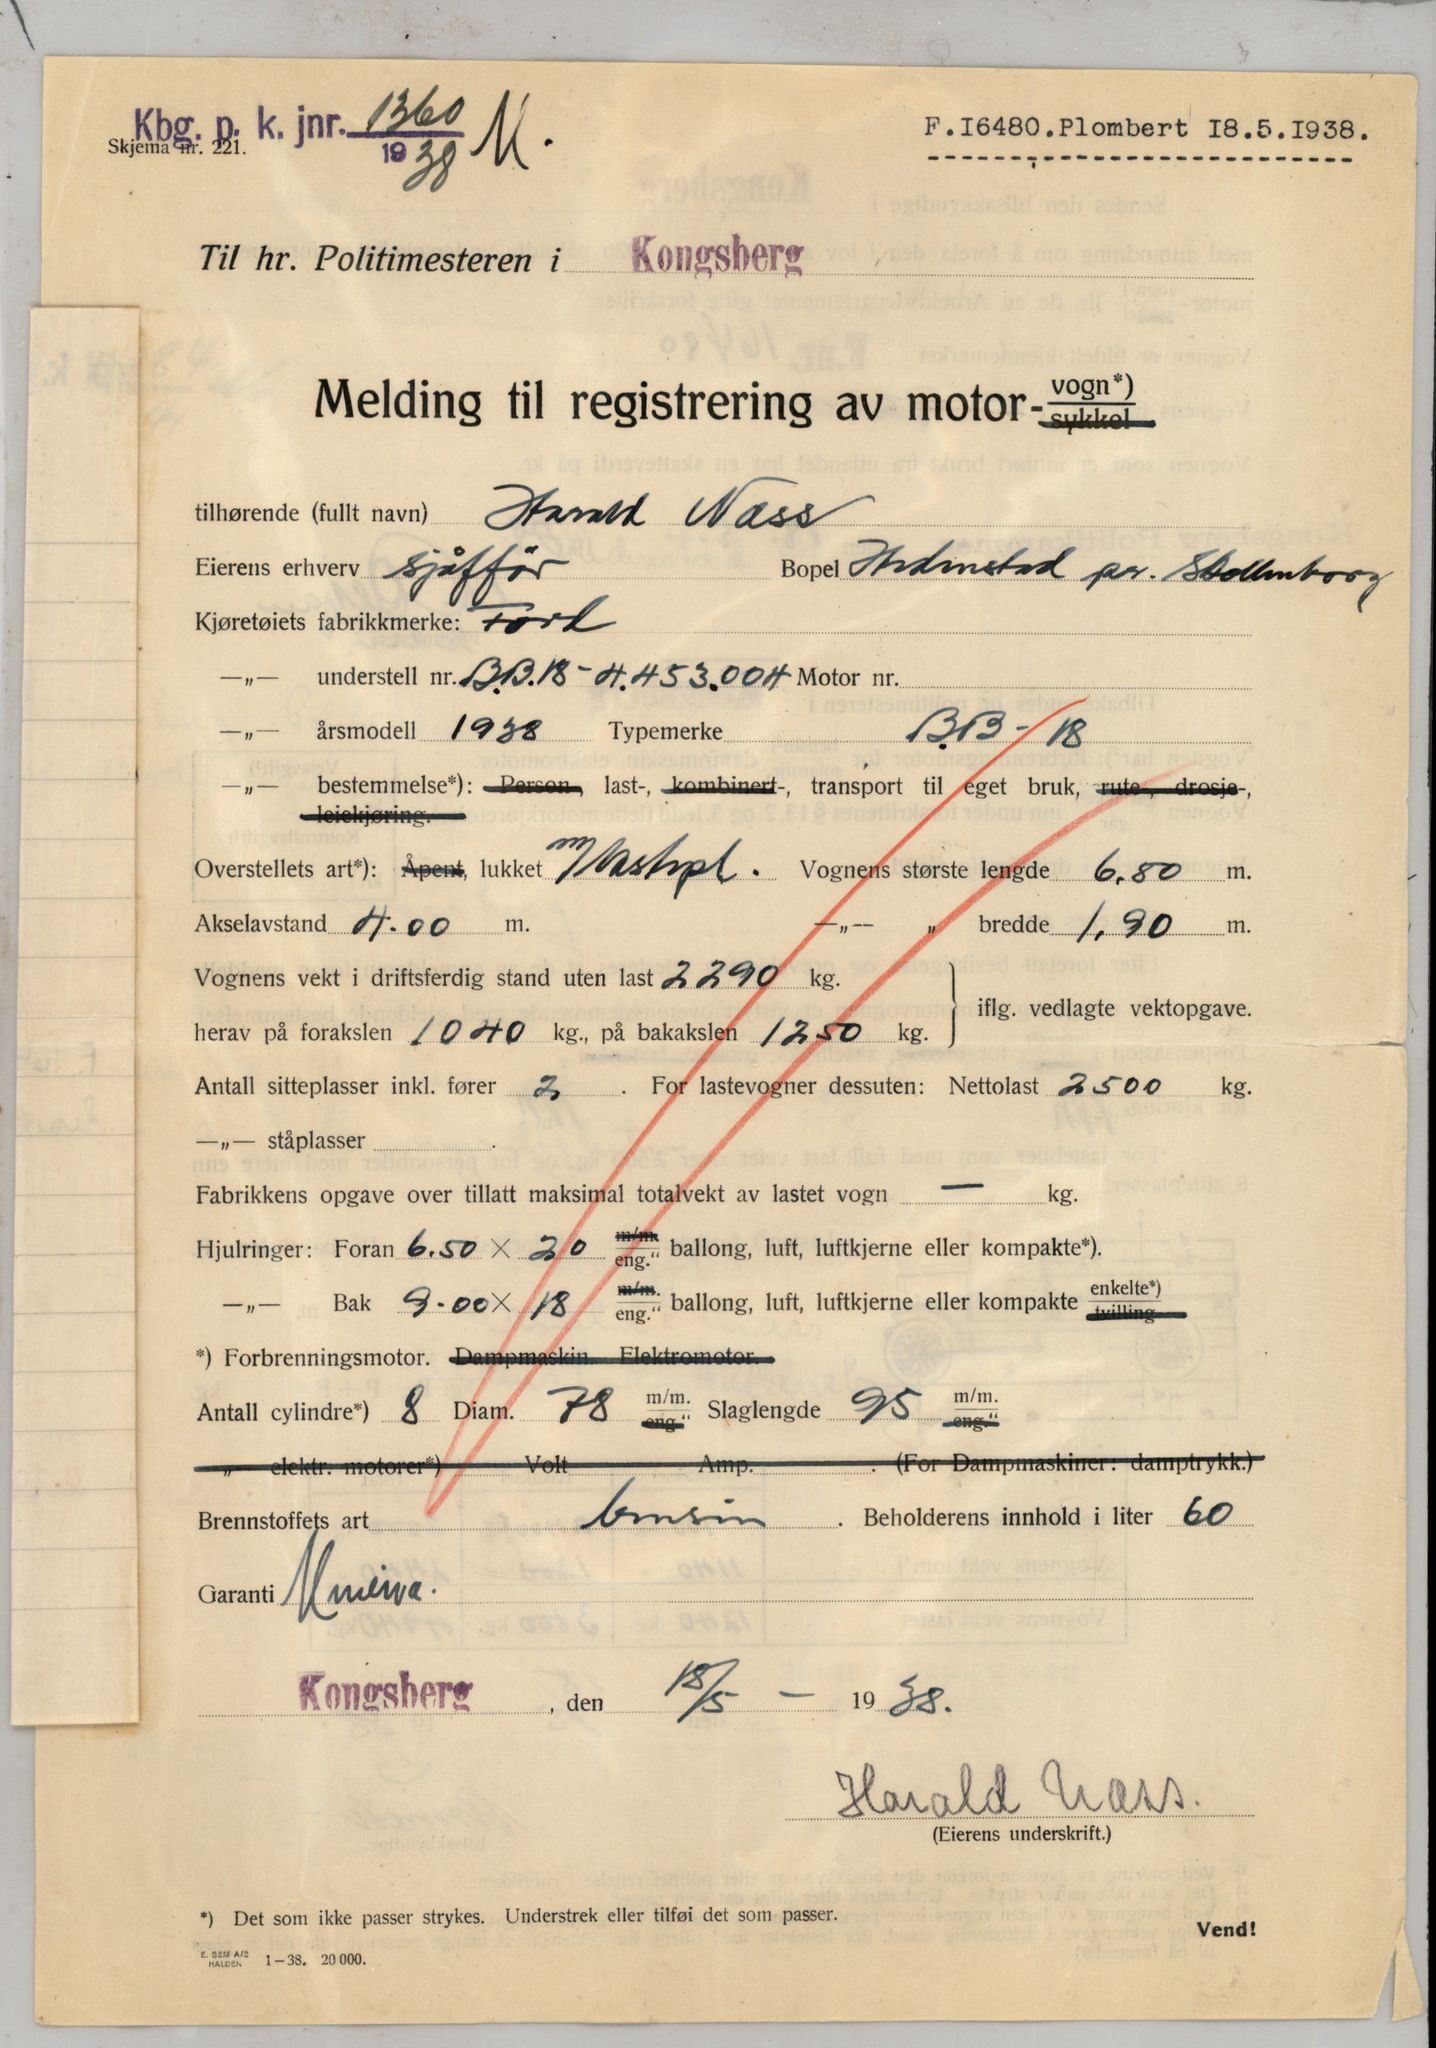 Kbg. p. k. jnr. 1360 M.
1938
Skjema nr. 221.
F.16480.Plombert 18.5.1938.
Til hr. Politimesteren i Kongsberg
Melding til registrering av motor- vogn*)
sykkel
tilhørende (fullt navn) Harald Næss
Eierens erhverv sjåfför Bopel Hedenstad pr. Skollenborg
Kjøretøiets fabrikkmerke: Ford
—„— understell nr. B.B.18-4.453.004 Motor nr.
—„— årsmodell 1938 Typemerke B.B-18
—„— bestemmelse*): Person, last-, kombinert-, transport til eget bruk, rute-, drosje-,
leiekjøring.
Overstellets art*): Åpent, lukket m/lastepl. Vognens største lengde 6.80 m.
Akselavstand 4.00 m. —„— „ bredde 1,90 m.
Vognens vekt i driftsferdig stand uten last 2290 kg.
herav på forakslen 1040 kg., på bakakslen 1250 kg. iflg. vedlagte vektopgave.
Antall sitteplasser inkl. fører 2. For lastevogner dessuten: Nettolast 2500 kg.
—„— ståplasser .
Fabrikkens opgave over tillatt maksimal totalvekt av lastet vogn — kg.
Hjulringer: Foran 6.50 × 20 m/m. eng.“ ballong, luft, luftkjerne eller kompakte*).
—„— Bak 9.00 × 18 m/m. eng.“ ballong, luft, luftkjerne eller kompakte enkelte*) tvilling
*) Forbrenningsmotor. Dampmaskin. Elektromotor.
Antall cylindre*) 8 Diam. 78 m/m. eng.“ Slaglengde 95 m/m. eng.“
„ elektr. motorer*) Volt Amp. . (For Dampmaskiner: damptrykk.)
Brennstoffets art bensin . Beholderens innhold i liter 60
Garanti Minerva.
Kongsberg, den 18/5 - 1938.
Harald Næss.
(Eierens underskrift.)
*) Det som ikke passer strykes. Understrek eller tilføi det som passer.
Vend!
E. SEM A/S
HALDEN 1—38. 20 000.